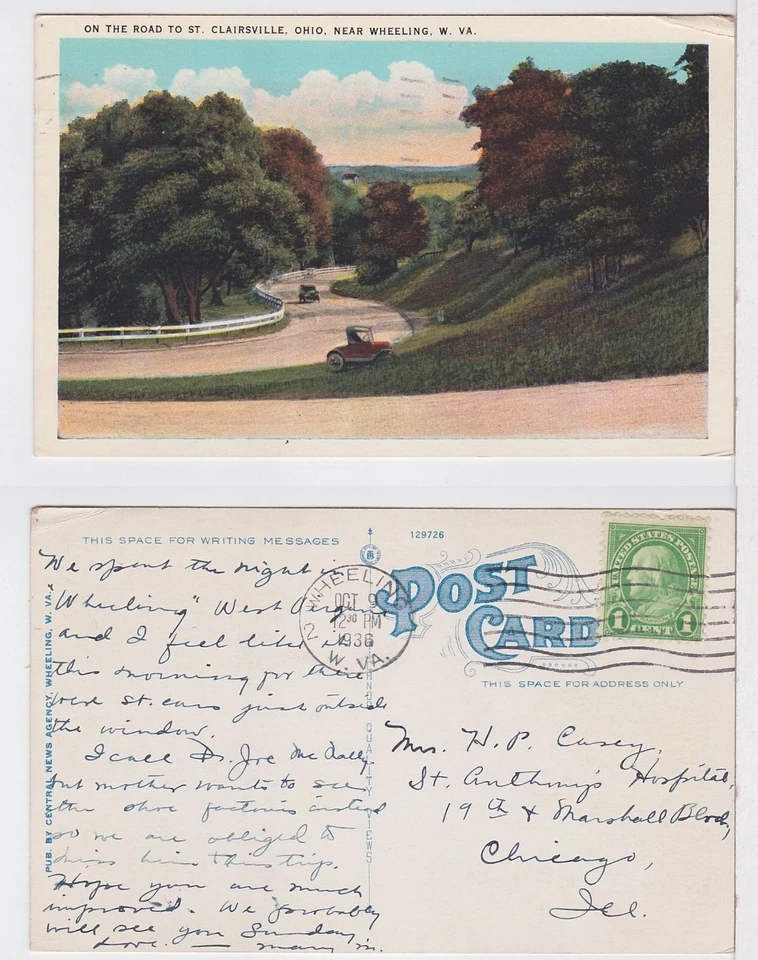 ON THE ROAD TO ST. CLAIRSVILLE, OHIO, NEAR WHEELING, W. VA.
THIS SPACE FOR WRITING MESSAGES
129726
POST CARD
UNITED STATES POSTAGE
FRANKLIN
1 CENT 1
WHEELING
OCT 9
12 30 PM
1936
W. VA.
2
THIS SPACE FOR ADDRESS ONLY
PUB. BY CENTRAL NEWS AGENCY, WHEELING, W. VA.
QUALITY VIEWS
We spent the night in
"Wheeling" West Virginia
and I feel like it
this morning for there
were st. cars just outside
the window.
I call Dr. Joe McNally
but mother wants to see
the shoe factories instead
so we are obliged to
miss him this trip.
Hope you are much
improved. We probably
will see you Sunday.
Love. — Mary M.
Mrs. H. P. Casey,
St. Anthony's Hospital,
19th & Marshall Blvd,
Chicago,
Ill.